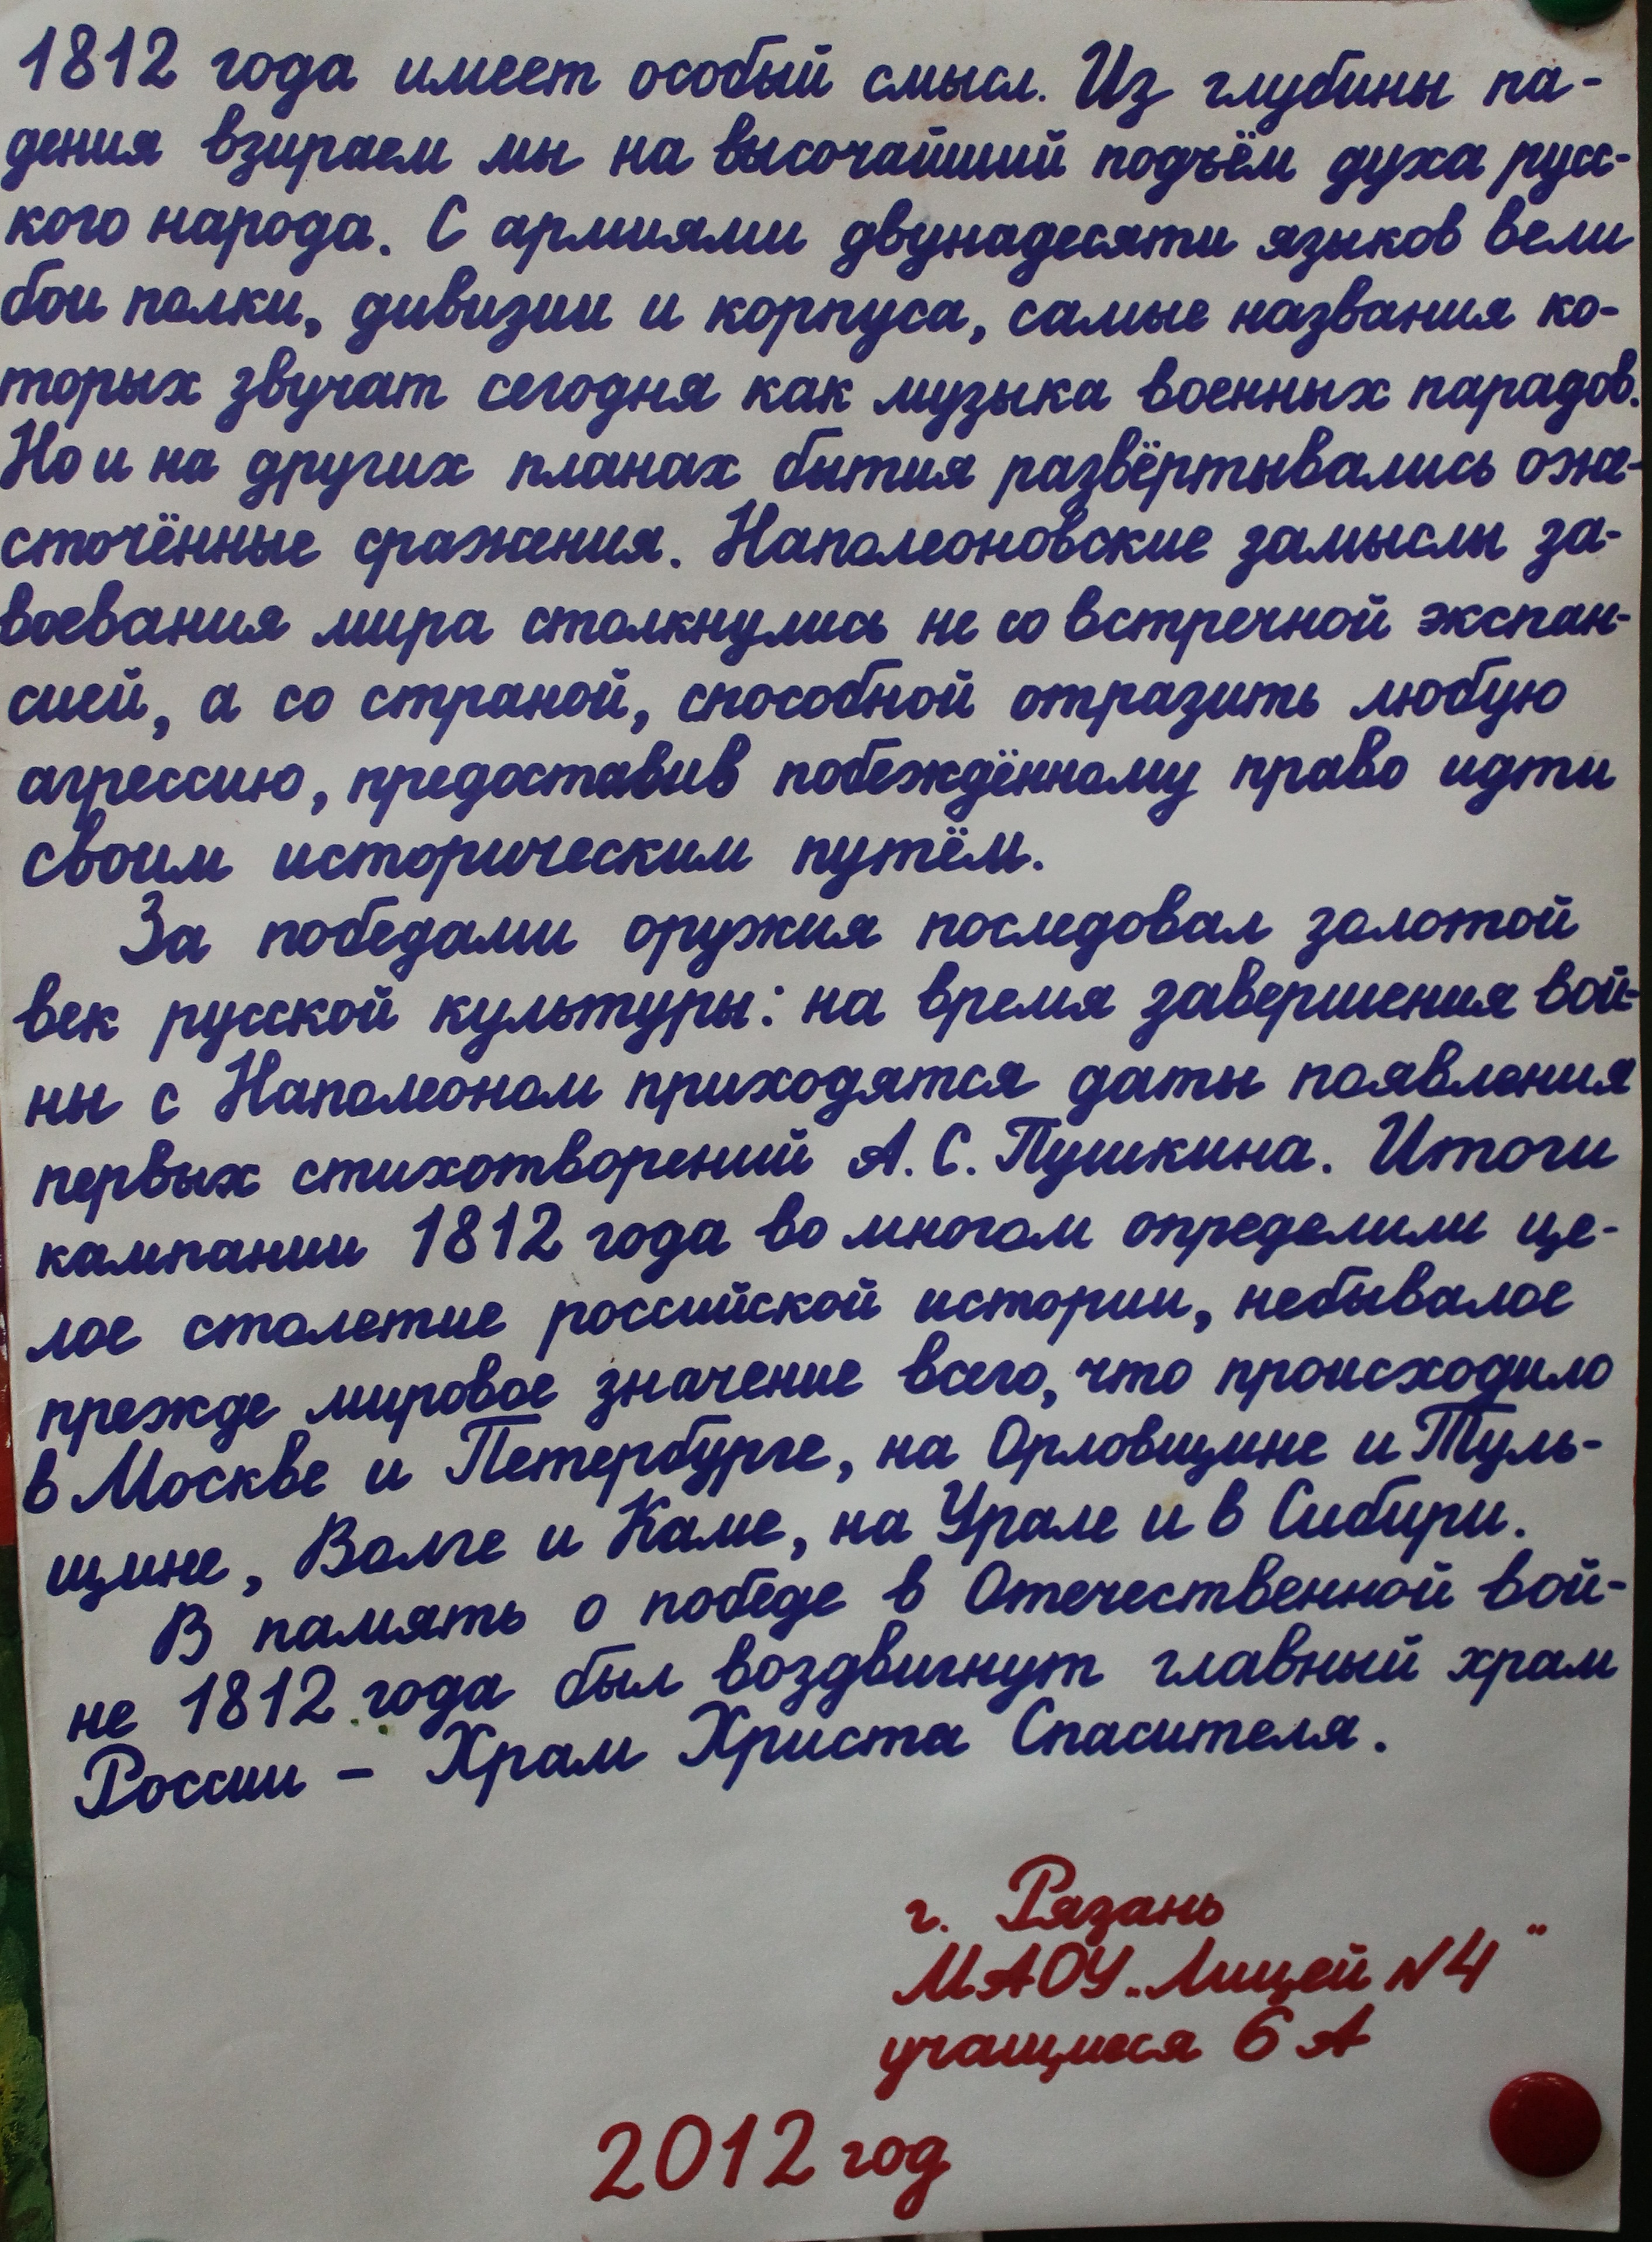 1812 года имеет особый смысл. Из глубины па-
дения взираем мы на высочайший подъём духа русс-
кого народа. С армиями двунадесяти языков вели
бои полки, дивизии и корпуса, самые названия ко-
торых звучат сегодня как музыка военных парадов.
Но и на других планах бытия развёртывались оже-
сточённые сражения. Наполеоновские замыслы за-
воевания мира столкнулись не со встречной экспан-
сией, а со страной, способной отразить любую
агрессию, предоставив побеждённому право идти
своим историческим путём.
За победами оружия последовал золотой
век русской культуры: на время завершения вой-
ны с Наполеоном приходятся даты появления
первых стихотворений А. С. Пушкина. Итоги
кампании 1812 года во многом определили це-
лое столетие российской истории, небывалое
прежде мировое значение всего, что происходило
в Москве и Петербурге, на Орловщине и Туль-
щине, Волге и Каме, на Урале и в Сибири.
В память о победе в Отечественной вой-
не 1812 года был воздвигнут главный храм
России - Храм Христа Спасителя.
г. Рязань
МАОУ „Лицей №4"
учащиеся 6 А
2012 год